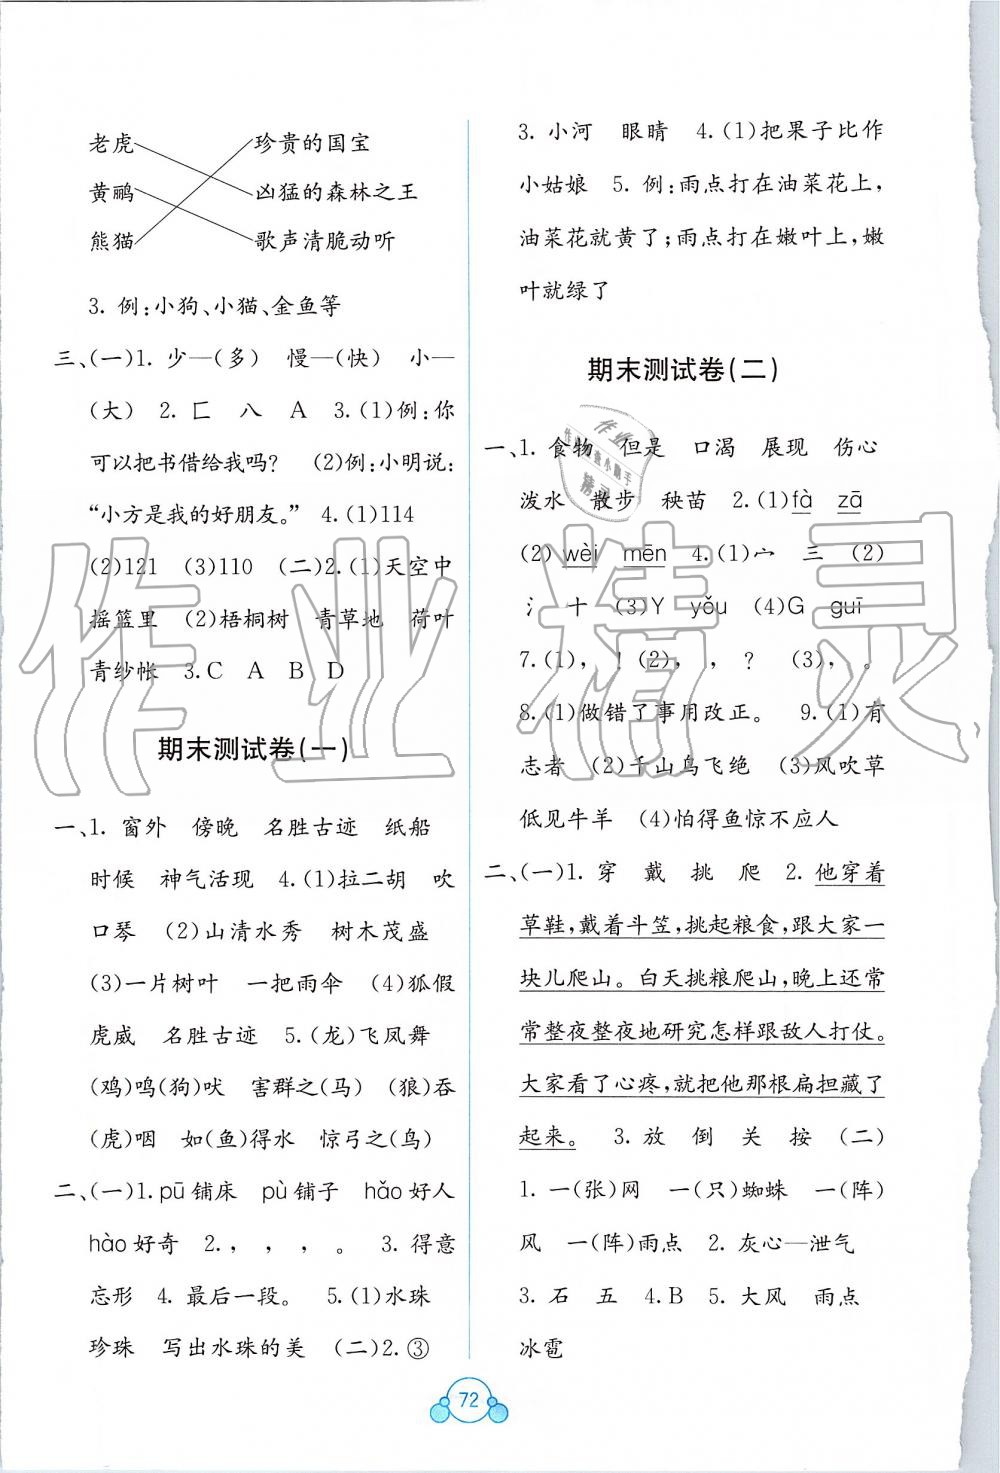 老虎 珍贵的国宝
黄鹂 凶猛的森林之王
熊猫 歌声清脆动听
3. 例:小狗、小猫、金鱼等
三、(一)1. 少—(多) 慢—(快) 小—
(大) 2. 匚 八 A 3. (1)例:你
可以把书借给我吗? (2)例:小明说:
“小方是我的好朋友。” 4. (1)114
(2)121 (3)110 (二)2. (1)天空中
摇篮里 (2)梧桐树 青草地 荷叶
青纱帐 3. C A B D
期末测试卷(一)
一、1. 窗外 傍晚 名胜古迹 纸船
时候 神气活现 4. (1)拉二胡 吹
口琴 (2)山清水秀 树木茂盛
(3)一片树叶 一把雨伞 (4)狐假
虎威 名胜古迹 5. (龙)飞凤舞
(鸡)鸣(狗)吠 害群之(马) (狼)吞
(虎)咽 如(鱼)得水 惊弓之(鸟)
二、(一)1. pū铺床 pù铺子 hǎo好人
hào好奇 2. , , , 。 3. 得意
忘形 4. 最后一段。 5. (1)水珠
珍珠 写出水珠的美 (二)2. ③
3. 小河 眼睛 4. (1)把果子比作
小姑娘 5. 例:雨点打在油菜花上,
油菜花就黄了;雨点打在嫩叶上,嫩
叶就绿了
期末测试卷(二)
一、1. 食物 但是 口渴 展现 伤心
泼水 散步 秧苗 2. (1)fà zā
(2)wèi mēn 4. (1)宀 三 (2)
氵 十 (3)Y yǒu (4)G guī
7. (1), ! (2), , ? (3), 。
8. (1)做错了事用改正。 9. (1)有
志者 (2)千山鸟飞绝 (3)风吹草
低见牛羊 (4)怕得鱼惊不应人
二、(一)1. 穿 戴 挑 爬 2. 他穿着
草鞋,戴着斗笠,挑起粮食,跟大家一
块儿爬山。白天挑粮爬山,晚上还常
常整夜整夜地研究怎样跟敌人打仗。
大家看了心疼,就把他那根扁担藏了
起来。 3. 放 倒 关 按 (二)
1. 一(张)网 一(只)蜘蛛 一(阵)
风 一(阵)雨点 2. 灰心—泄气
3. 石 五 4. B 5. 大风 雨点
冰雹
72
作业精灵